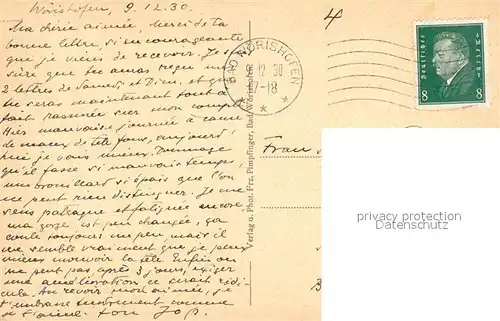 Wörishofen, 9.12.30.
Ma chérie aimée Merci de ta
bonne lettre, si encourageante
que je viens de recevoir. Je suis
sûre que tu auras reçu mes
2 lettres de Samedi et Dim. et que
tu seras maintenant tout à
fait rassurée sur mon compte
Hier mauvaise journée à cause
de maux de tête fous, aujourd'
hui je vais mieux. Dommage
qu'il fasse si mauvais temps,
un brouillard si épais que l'on
ne peut rien distinguer. Je me
sens patraque et fatiguée encore
ma gorge est peu changée, ça
coûte toujours un peu, mais il
me semble vraiment que je peux
mieux mouvoir la tête Enfin on
ne peut pas, après 3 jours, exiger
une amélioration ce serait ridi-
cule. Au revoir mon aimée, je
t'embrasse tendrement comme
je t'aime. ton
4
BAD WÖRISHOFEN
9.12.30
17-18
Deutsches Reich
8 8
Frau
Verlag u. Phot. Frz. Pimpfinger, Bad Wörishofen
privacy protection
watermark